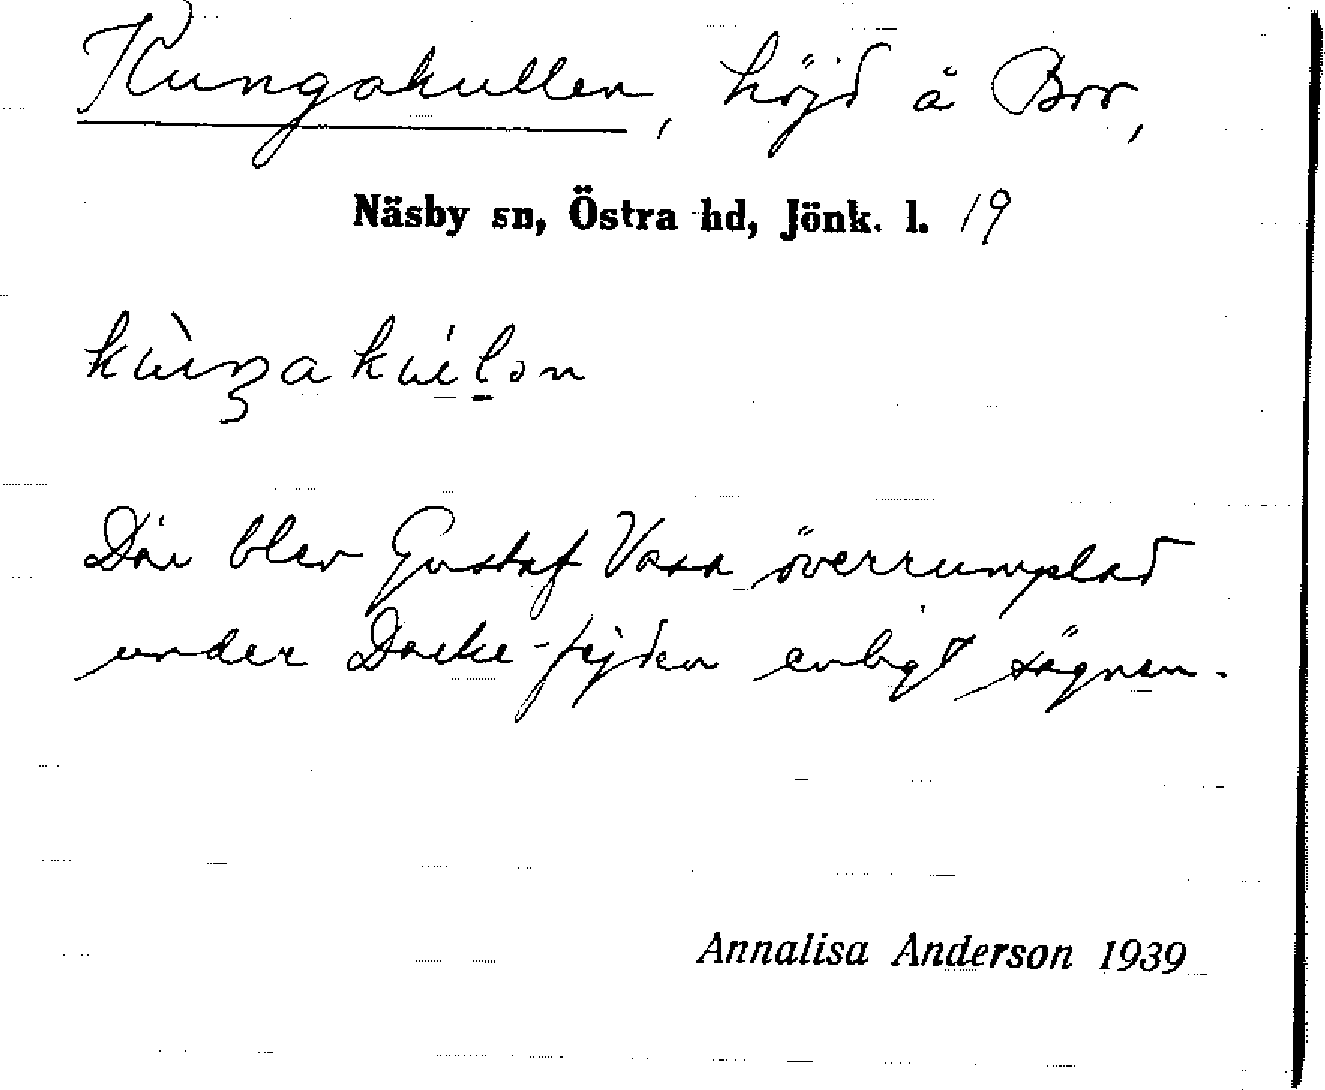 Kungakullen, höjd å Bro,
Näsby sn, Östra hd, Jönk. l. 19
Där blev Gustaf Vasa överrumplad
under Dacke-fejden enligt sägnen.
Annalisa Anderson 1939